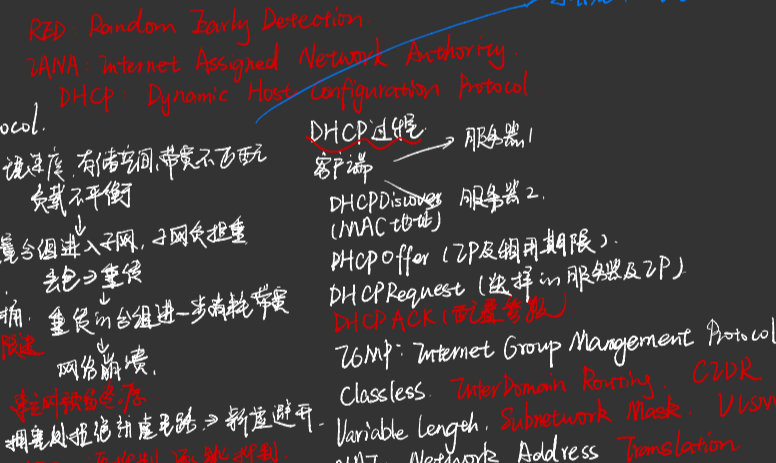 RED: Random Early Detection
IANA: Internet Assigned Network Authority.
DHCP: Dynamic Host Configuration Protocol
ocol.
速度,存储空间,带宽不匹配
负载不平衡
分组进入子网,子网负担重
丢包⇒重传
重传的分组进一步消耗带宽
网络崩溃.
拥塞处拒绝创建电路⇒新虚避开.
DHCP过程.
客户端
服务器1
DHCPDiscover 服务器2.
(MAC地址)
DHCPOffer (IP及租用期限).
DHCPRequest (选择的服务器及IP)
DHCPACK (配置参数)
IGMP: Internet Group Management Protocol
Classless. InterDomain Routing. CIDR
Variable Length. Subnetwork Mask. VLSM
NAT: Network Address Translation.